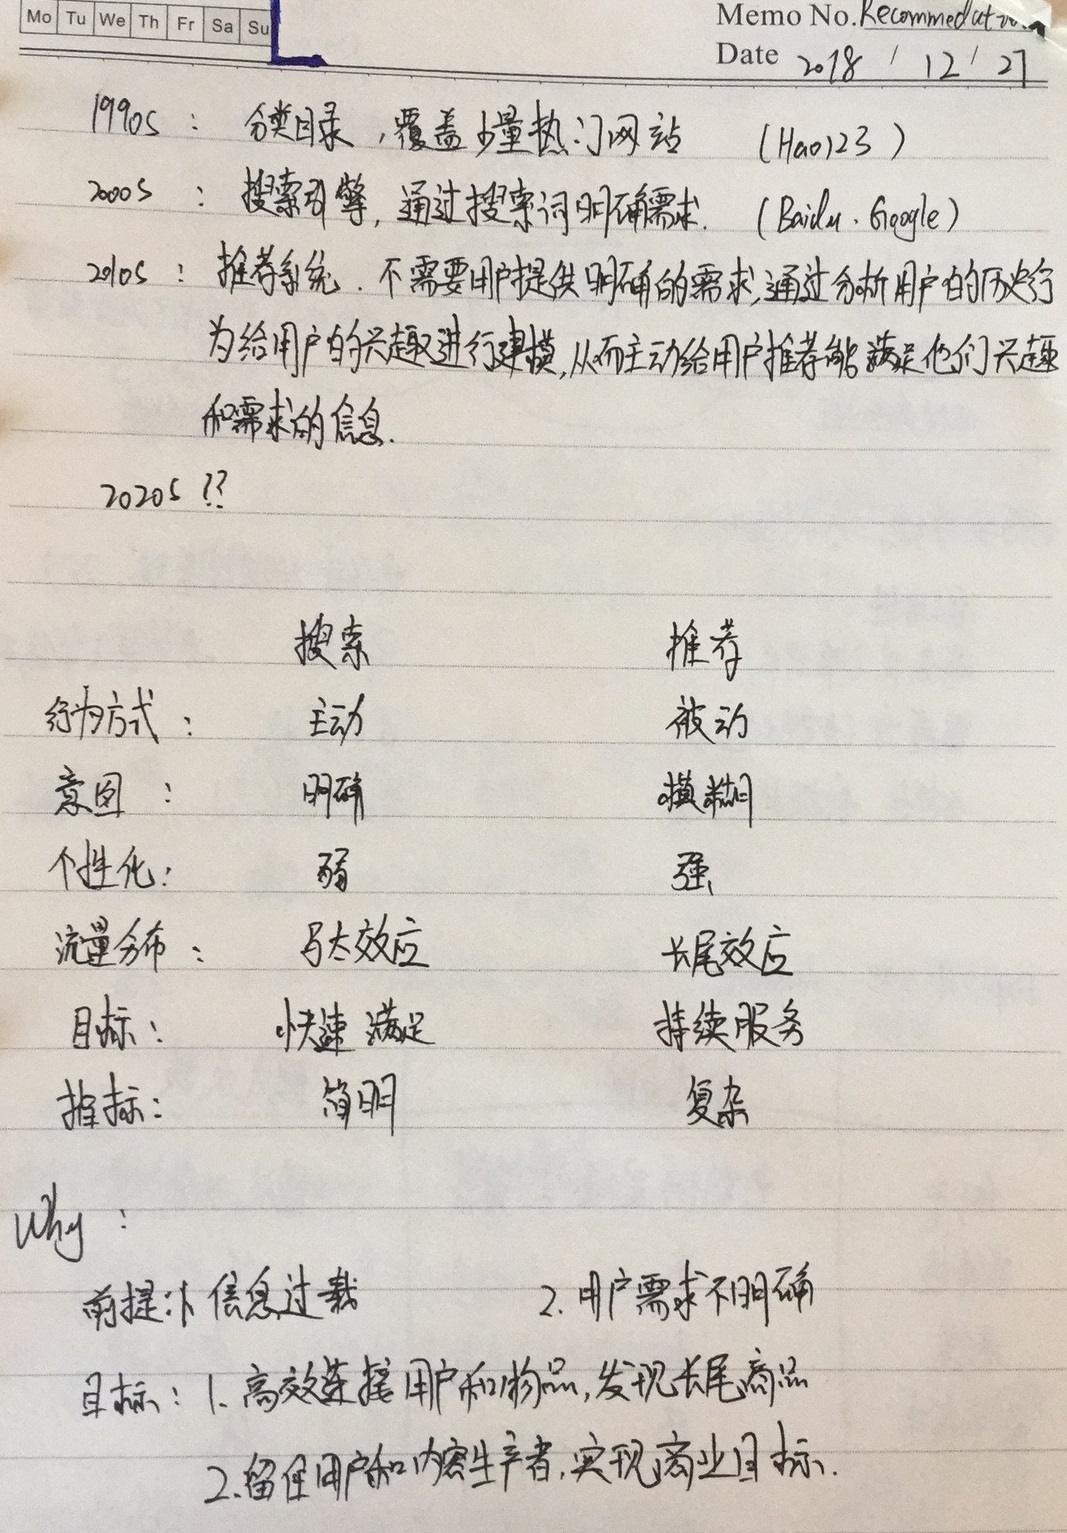 Mo Tu We Th Fr Sa Su
Memo No. Recommedation
Date 2018 / 12 / 27
1990s : 分类目录，覆盖少量热门网站 (Hao123)
2000s : 搜索引擎，通过搜索词明确需求. (Baidu. Google)
2010s : 推荐系统. 不需要用户提供明确的需求,通过分析用户的历史行
为给用户的兴趣进行建模,从而主动给用户推荐能满足他们兴趣
和需求的信息.
2020s ??
搜索 推荐
行为方式: 主动 被动
意图: 明确 模糊
个性化: 弱 强
流量分布: 马太效应 长尾效应
目标: 快速满足 持续服务
指标: 简明 复杂
Why:
前提: 1. 信息过载 2. 用户需求不明确
目标: 1. 高效连接用户和物品,发现长尾商品
2. 留住用户和内容生产者,实现商业目标.